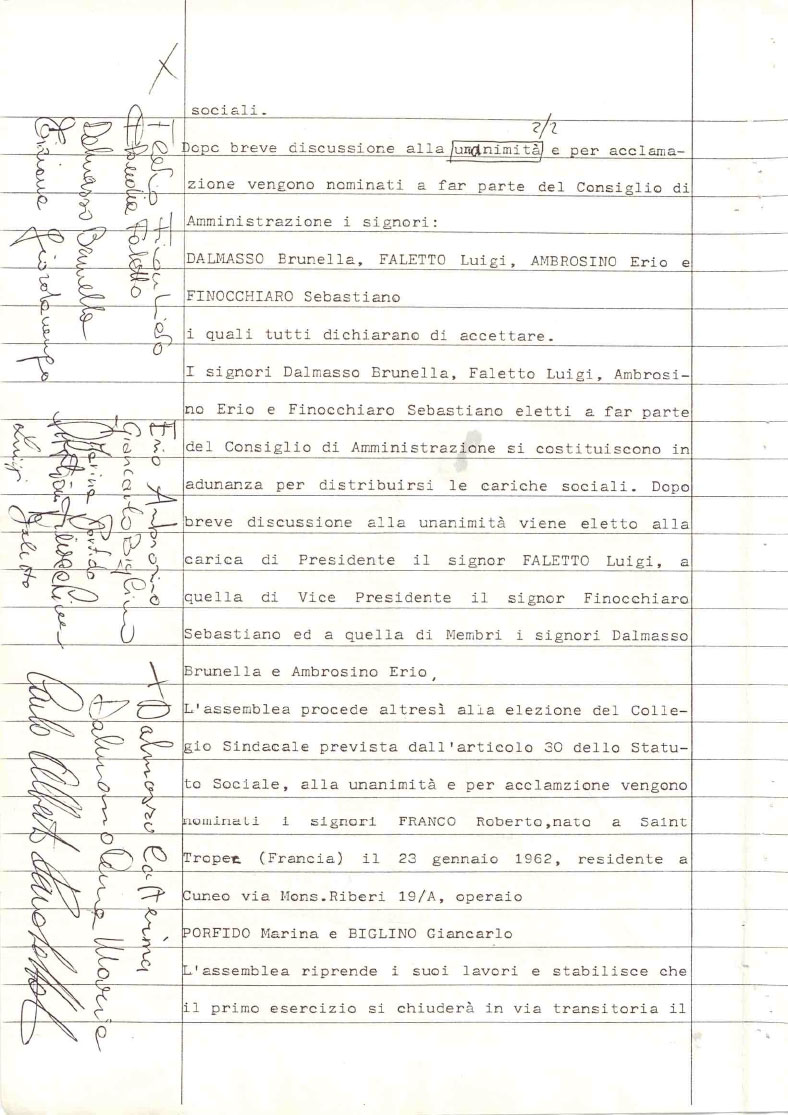 sociali.
2/2
Dopc breve discussione alla unanimità e per acclama-
zione vengono nominati a far parte del Consiglio di
Amministrazione i signori:
DALMASSO Brunella, FALETTO Luigi, AMBROSINO Erio e
FINOCCHIARO Sebastiano
i quali tutti dichiarano di accettare.
I signori Dalmasso Brunella, Faletto Luigi, Ambrosi-
no Erio e Finocchiaro Sebastiano eletti a far parte
del Consiglio di Amministrazione si costituiscono in
adunanza per distribuirsi le cariche sociali. Dopo
breve discussione alla unanimità viene eletto alla
carica di Presidente il signor FALETTO Luigi, a
quella di Vice Presidente il signor Finocchiaro
Sebastiano ed a quella di Membri i signori Dalmasso
Brunella e Ambrosino Erio,
L'assemblea procede altresì alla elezione del Colle-
gio Sindacale prevista dall'articolo 30 dello Statu-
to Sociale, alla unanimità e per acclamzione vengono
nominati i signori FRANCO Roberto,nato a Saint
Tropez (Francia) il 23 gennaio 1962, residente a
Cuneo via Mons.Riberi 19/A, operaio
PORFIDO Marina e BIGLINO Giancarlo
L'assemblea riprende i suoi lavori e stabilisce che
il primo esercizio si chiuderà in via transitoria il
Dalmasso Brunella
Erio Ambrosino
Giancarlo Biglino
Marina Porfido
Luigi Faletto
Dalmasso Caterina